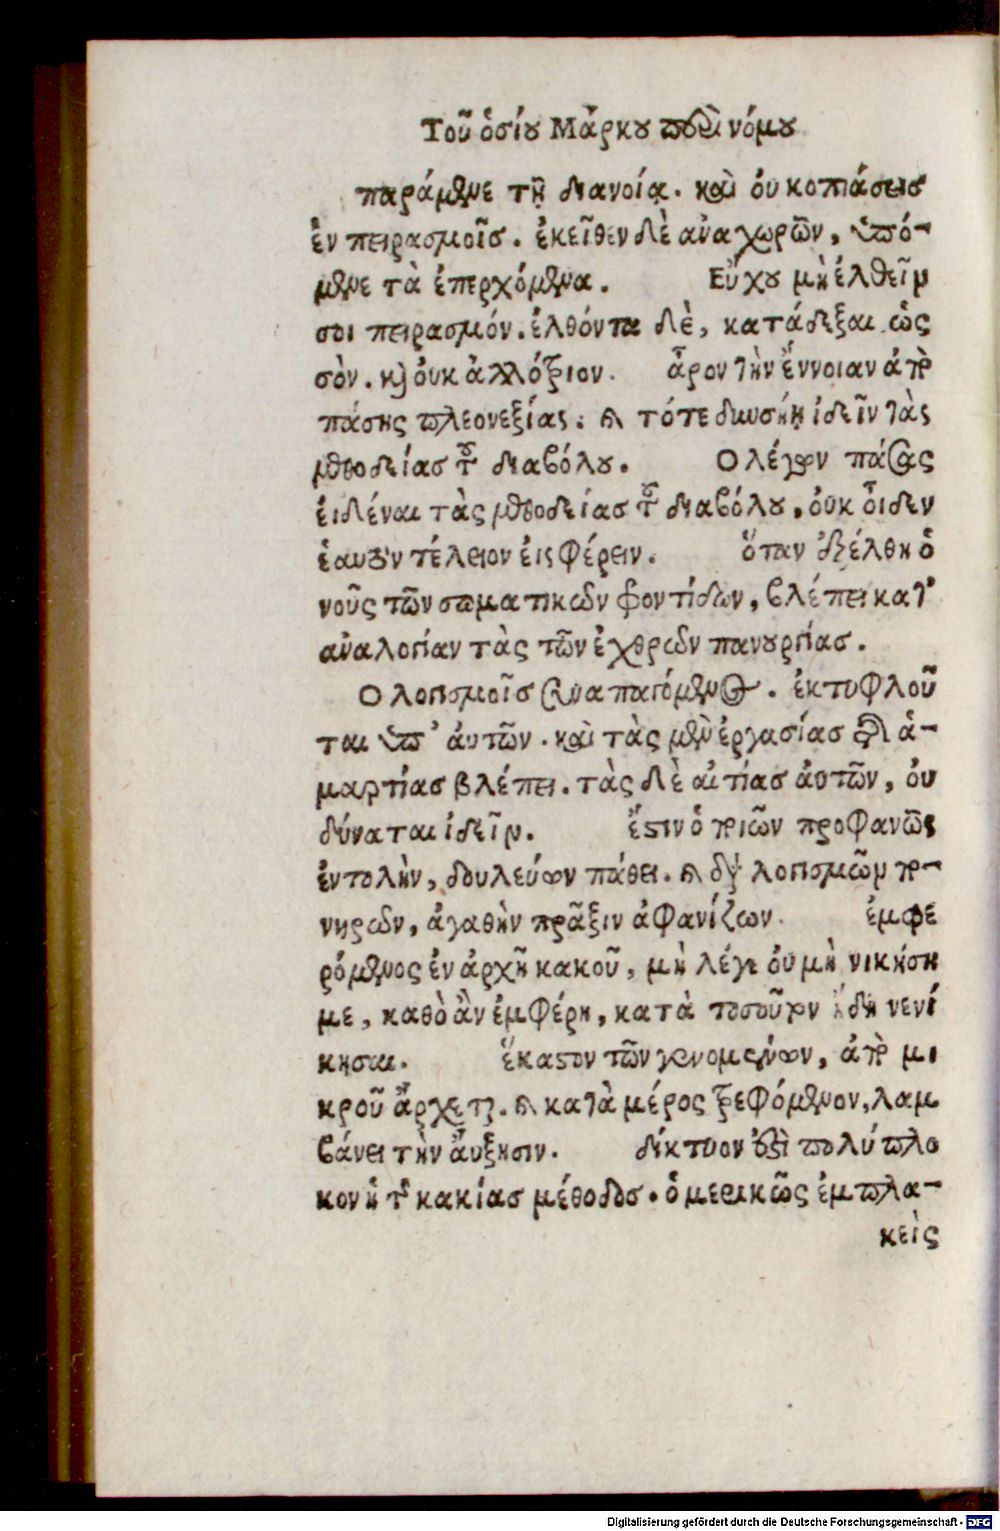 Τοῦ ὁσίου Μάρκου περὶ νόμου
παράμενε τῇ διανοίᾳ. καὶ οὐ κοπιάσεις
ἐν πειρασμοῖς. ἐκεῖθεν δὲ ἀναχωρῶν, ὑπό-
μενε τὰ ἐπερχόμενα. Εὔχου μὴ ἐλθεῖν
σοι πειρασμόν. ἐλθόντα δὲ, κατάδεξαι ὡς
σὸν. καὶ οὐκ ἀλλότριον. ἆρον τὴν ἔννοιαν ἀπὸ
πάσης πλεονεξίας. καὶ τότε δυνήσῃ ἰδεῖν τὰς
μεθοδείας τοῦ διαβόλου. Ο λέγων πάσας
εἰδέναι τὰς μεθοδείας τοῦ διαβόλου, οὐκ οἶδεν
ἑαυτὸν τέλειον εἰσφέρειν. ὅταν ἐξέλθη ὁ
νοῦς τῶν σωματικῶν φροντίδων, βλέπει κατ'
ἀναλογίαν τὰς τῶν ἐχθρῶν πανουργίας.
Ο λογισμοῖς συναπαγόμενος. ἐκτυφλοῦ
ται ὑπ' αὐτῶν. καὶ τὰς μὲν ἐργασίας τῆς ἁ-
μαρτίας βλέπει. τὰς δὲ αἰτίας αὐτῶν, οὐ
δύναται ἰδεῖν. ἔστιν ὁ ποιῶν προφανῶς
ἐντολὴν, δουλεύων πάθει. καὶ διὰ λογισμῶν πο-
νηρῶν, ἀγαθὴν πρᾶξιν ἀφανίζων. ἐμφε
ρόμενος ἐν ἀρχῇ κακοῦ, μὴ λέγε οὐ μὴ νικήση
με, καθὸ ἂν ἐμφέρη, κατὰ τοσοῦτον ἤδη νενί
κησαι. ἕκαστον τῶν γενομένων, ἀπὸ μι
κροῦ ἄρχεται. καὶ κατὰ μέρος τρεφόμενον, λαμ
βάνει τὴν αὔξησιν. δίκτυον ἐστὶ πολύπλο
κον ἡ τῆς κακίας μέθοδος. ὁ μερικῶς ἐμπλα-
κεὶς
Digitalisierung gefördert durch die Deutsche Forschungsgemeinschaft - DFG